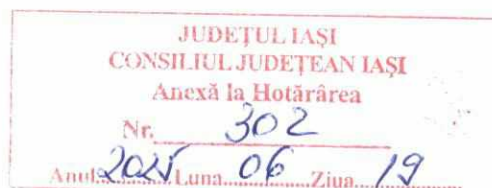 JUDEȚUL IAȘI
CONSILIUL JUDEȚEAN IAȘI
Anexă la Hotărârea
Nr. 302
Anul 2025 Luna 06 Ziua 19